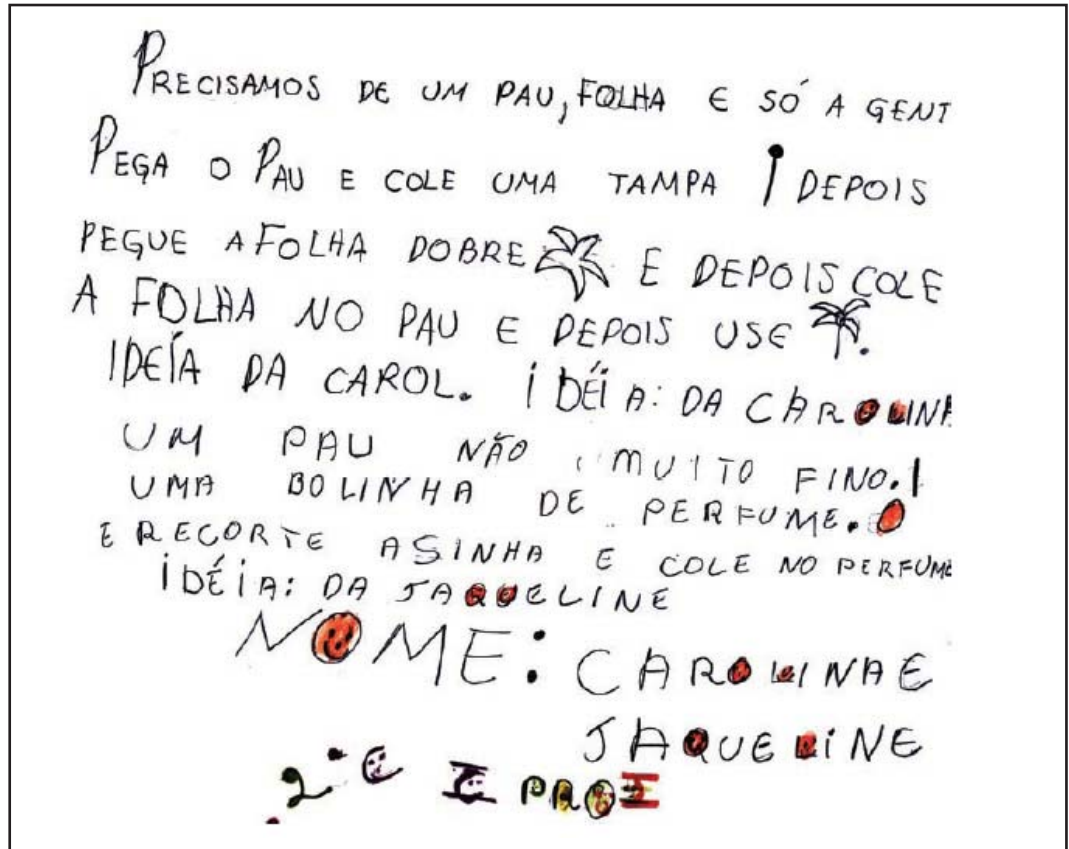 PRECISAMOS DE UM PAU, FOLHA E SÓ A GENT
PEGA O PAU E COLE UMA TAMPA DEPOIS
PEGUE A FOLHA DOBRE E DEPOIS COLE
A FOLHA NO PAU E DEPOIS USE .
IDEÍA DA CAROL. IDÉIA: DA CAROLINA
UM PAU NÃO MUITO FINO.
UMA BOLINHA DE PERFUME.
E RECORTE ASINHA E COLE NO PERFUME
IDÉIA: DA JAQUELINE
NOME: CAROLINA E
JAQUELINE
2ª C